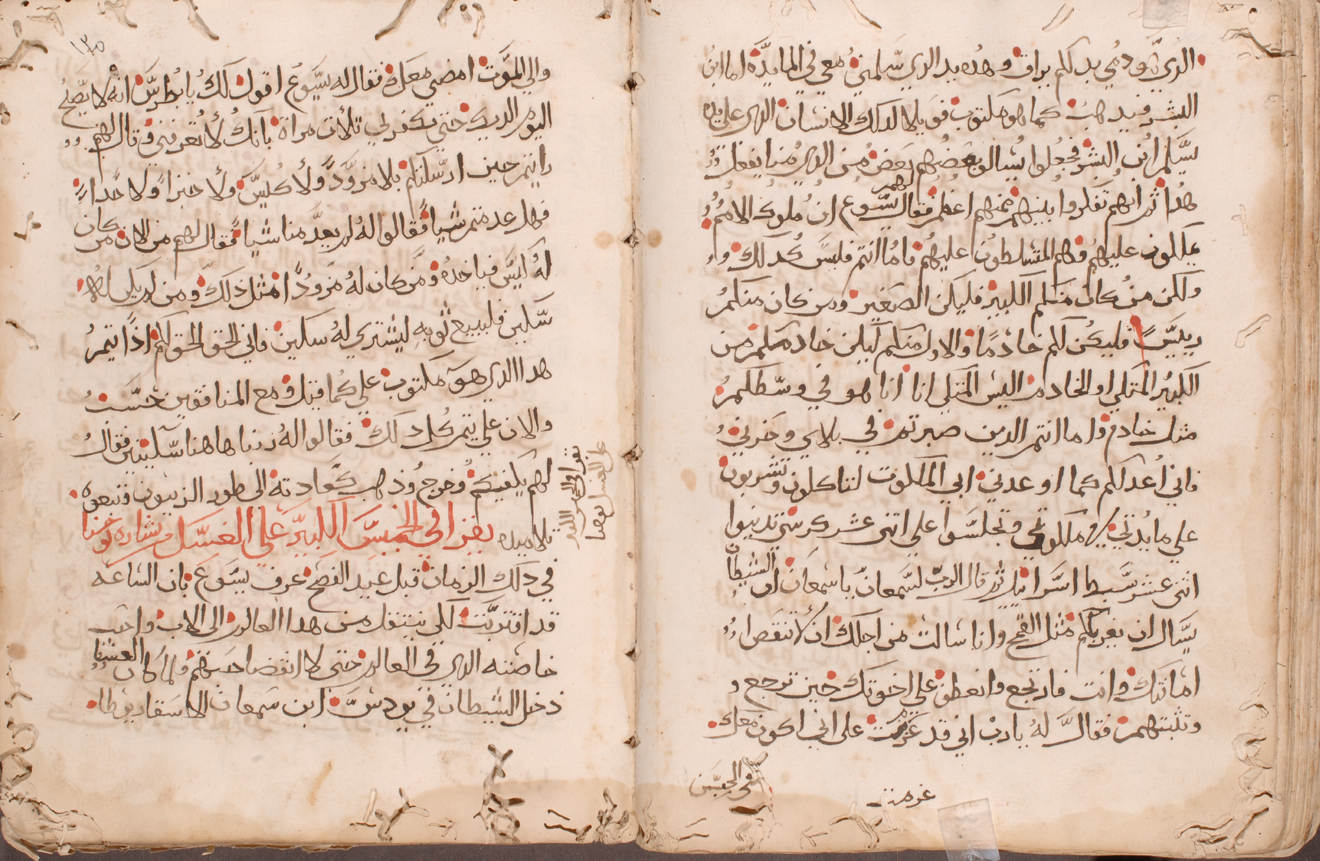 الذي دمي بدلكم يراق وهذه يد الذي يسلمني معي في المايدة اما ابن
البشر فيدهب كما هو مكتوب فويلا لذلك الانسان الذي على يديه
يسلم ابن البشر فجعلوا يسالو بعضهم بعض من الذي منا يفعل
هذا ثم انهم تفكروا بينهم عنهم اعظم فقال لهم يسوع ان ملوك الامم
يملكون عليهم وهم المسلطون عليهم فاما انتم فليس كدلك
ولكن من كان منكم الكبير فليكن الصغير ومن كان منكم
ريسًا فليكن لكم خادمًا والاول منكم ليكن خادمكم من
الكبير المتكي او الخادم اليس المتكي انا انا هو في وسطكم
مثل خادم واما انتم الدين صبرتم في بلاي وحزني
فاني اعد لكم كما اوعدني ابي الملكوت لتاكلون وتشربون
على مايدتي في ملكوتي وتجلسوا على اثنى عشر كرسي تدينوا
اثنى عشر سبط اسرايل ثم قال الرب لسمعان ياسمعان ان الشيطان
يسال ان يغربلكم مثل القمح وانا سالت من اجلك ان لا تنقص
امانتك وانت فارتجع وانعطف على اخوتك حين ترجع
وتثبتهم فقال له يارب اني قد عزمت على اني اكون معك
عزمت
في الخميس
١٣٥
والى الموت امضي معك فقال له يسوع اقول لك يا بطرس انه لا يصيح
اليوم الديك حتى تكفر بي ثلاث مراة بانك لا تعرفني وقال لهم
رايتم حين ارسلتكم بلا مزود ولا كيس ولا خبزا ولا حداء
فهل عدمتم شيا فقالوا له لم يعدمنا شيا فقال لهم من الان من كان
له كيس فياخده ومن كان له مزودًا مثل ذلك ومن لم يكن له
سكين فليبيع ثوبه ليشتري له سكين فاني الحق الحق لكم اذا يتم
هدا الذي هو مكتوب علي كما قيل ومع المنافقين حسبت
والان علي يتم كل دلك فقالوا له ربنا هاهنا سكينين فقال
لهم يكفيكم وخرج وذهب كعادته الى طور الزيتون فتبعوه
تلاميده يقرا في الخميس الكبير على الغسل بشارة يوحنا
في دلك الزمان قبل عيد الفصح عرف يسوع بان الساعه
قد اقتربت لكي ينتقل من هدا العالم الى الاب واحب
خاصته الذي في العالم حتى لانقضا حبهم ولما كان العشا
دخل الشيطان في يودس ابن سمعان الاسقاريوطا
يقرا في الخميس الكبير
على الغسل ايضا